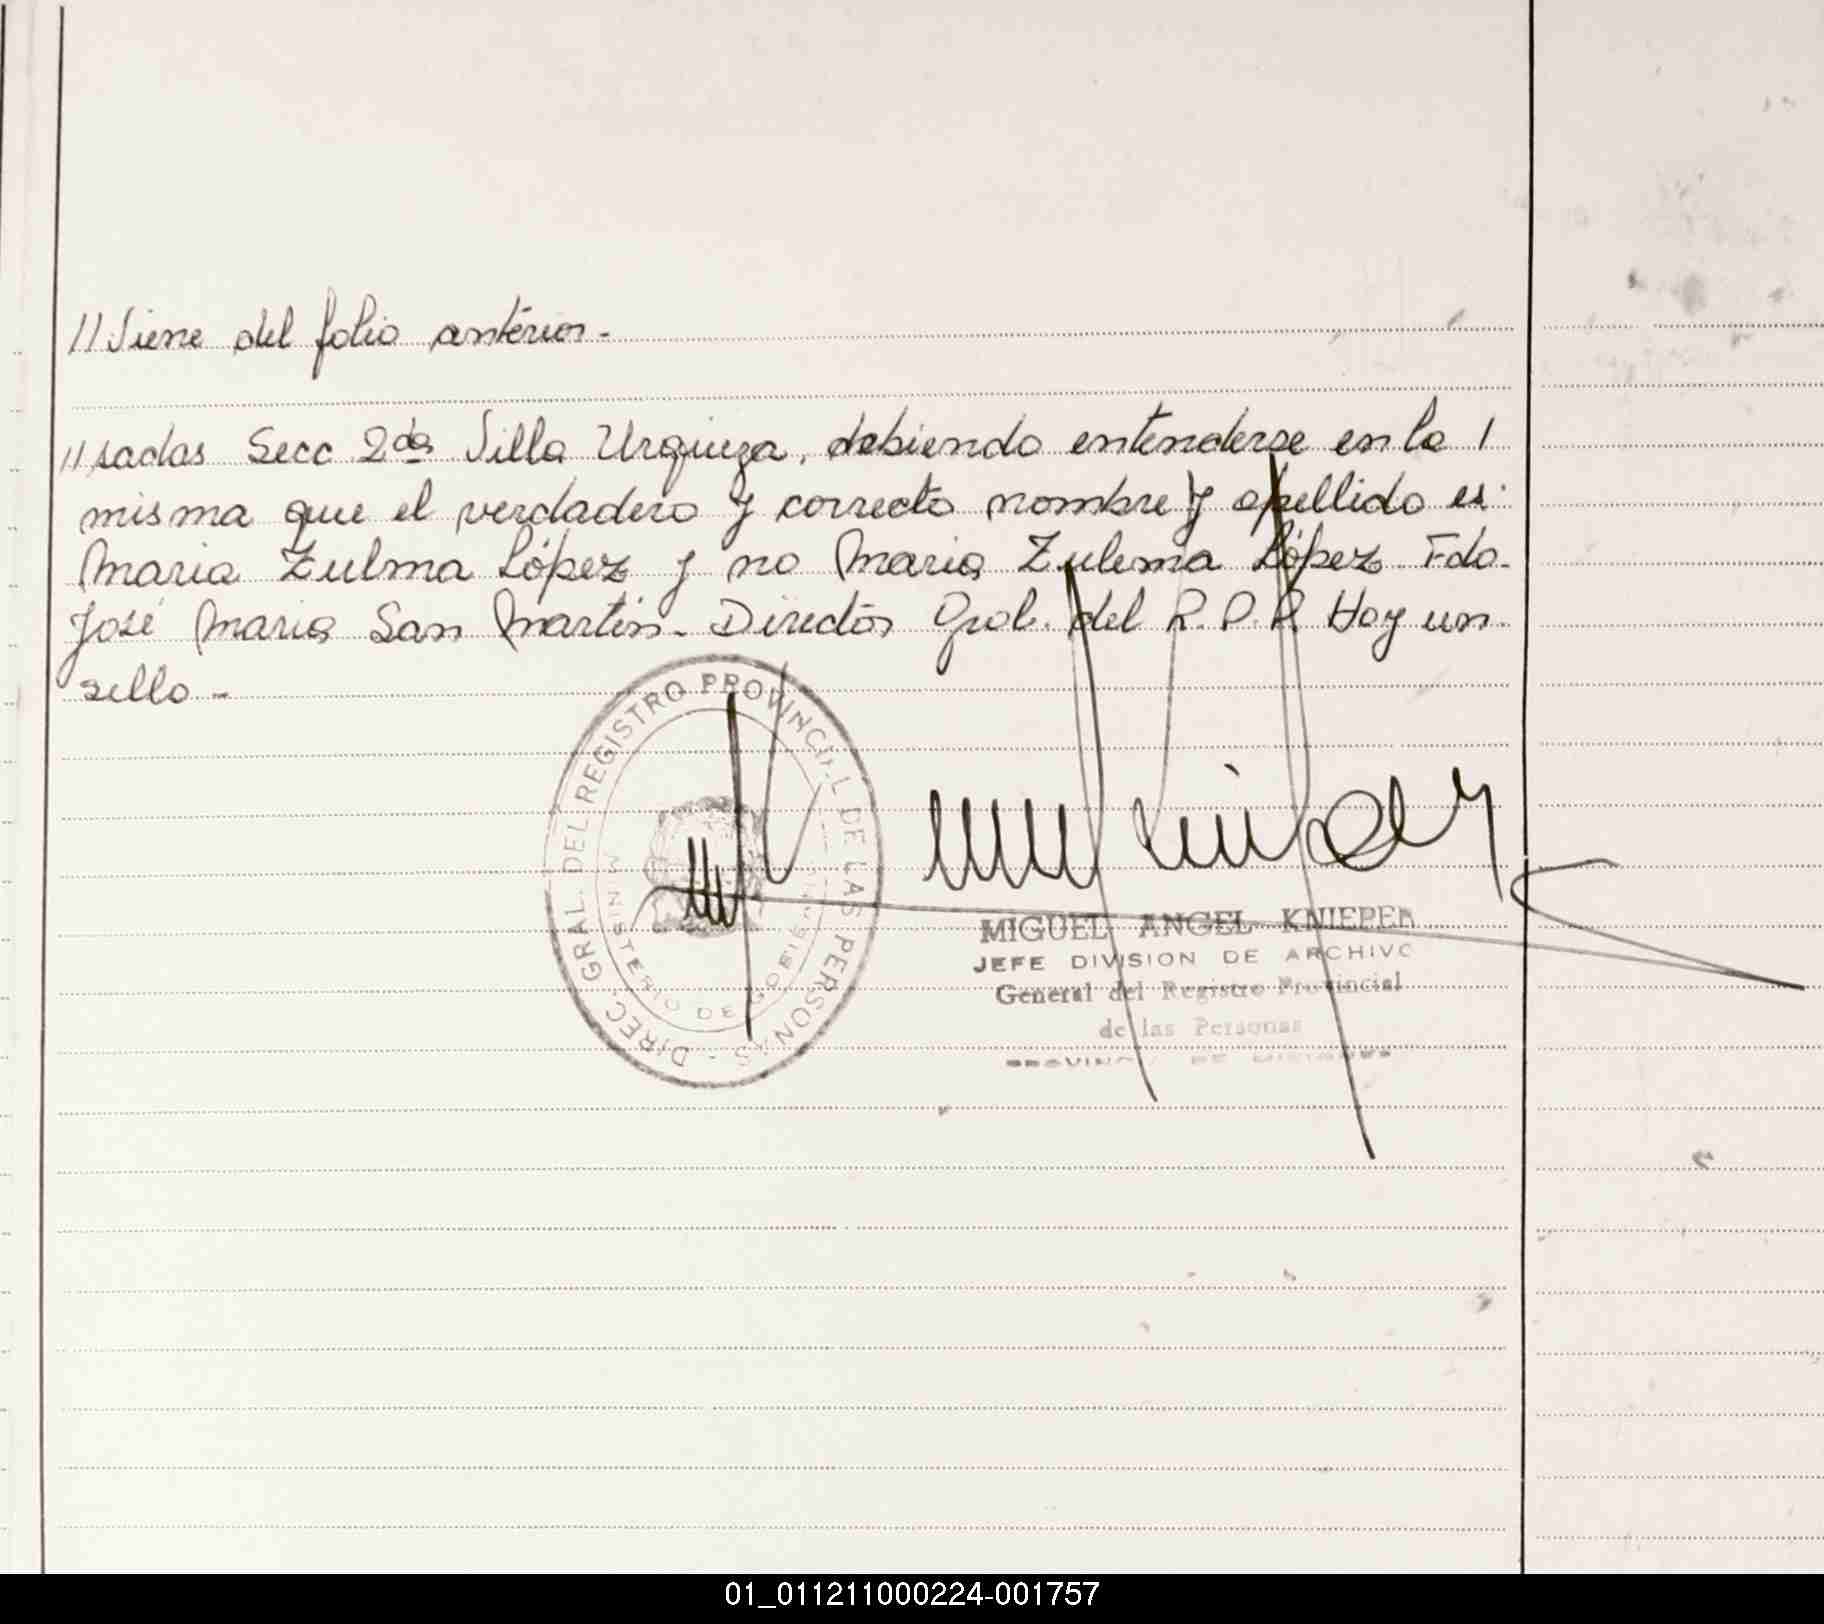 //Viene del folio anterior.-
//sadas Secc 2da Villa Urquiza, debiendo entenderse en la /
misma que el verdadero y correcto nombre y apellido es:
Maria Zulma López y no Maria Zulema López. Fdo.
José Maria San Martin. Director Gral. del R.P.P. Hay un
sello.-
DIREC. GRAL. DEL REGISTRO PROVINCIAL DE LAS PERSONAS
MINISTERIO DE GOBIERNO
MIGUEL ANGEL KNIEPER
JEFE DIVISION DE ARCHIVO
General del Registro Provincial
de las Personas
PROVINCIA DE MISIONES
01_011211000224-001757